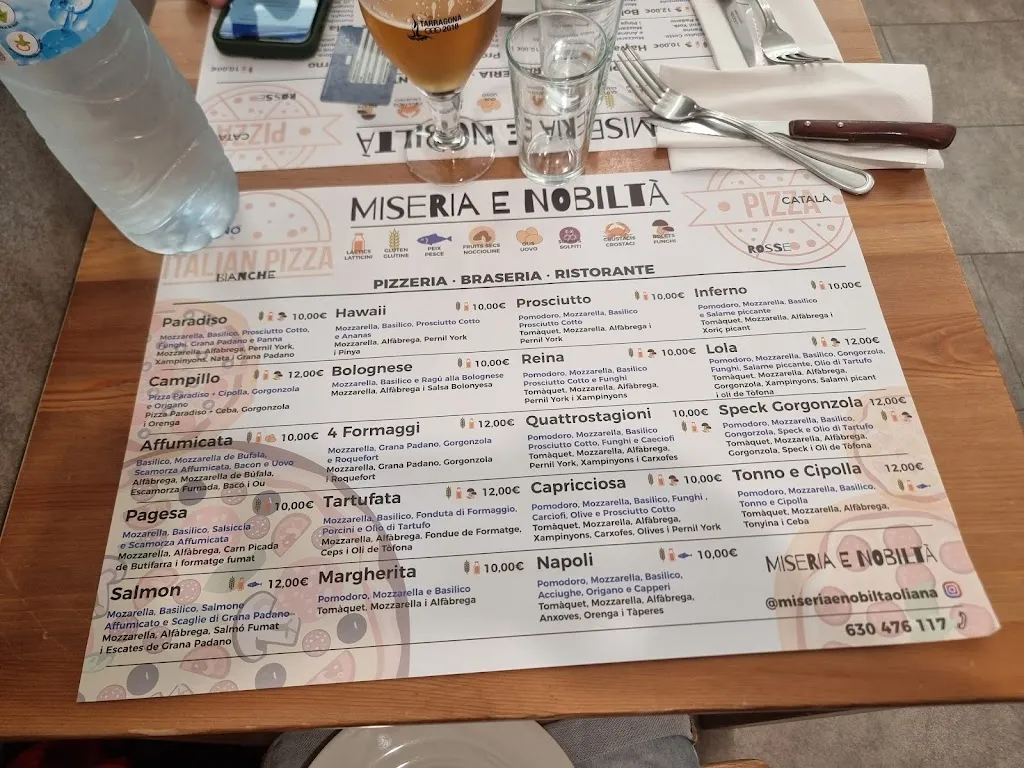 TARRAGONA
2018
MISERIA E NOBILTÀ
PIZZA
CATALA
ROSSE
MISERIA E NOBILTÀ
LACTICS
LATTICINI
GLUTEN
GLUTINE
PEIX
PESCE
FRUITS SECS
NOCCIOLINE
OUS
UOVO
SULFITI
CRUSTACIS
CROSTACI
BOLETS
FUNGHI
PIZZERIA · BRASERIA · RISTORANTE
ITALIAN PIZZA
BIANCHE
PIZZA
CATALA
ROSSE
Paradiso 10,00€
Mozzarella, Basilico, Prosciutto Cotto,
Funghi, Grana Padano e Panna
Mozzarella, Alfàbrega, Pernil York,
Xampinyons, Nata i Grana Padano
Campillo 12,00€
Pizza Paradiso + Cipolla, Gorgonzola
e Origano
Pizza Paradiso + Ceba, Gorgonzola
i Orenga
Affumicata 10,00€
Basilico, Mozzarella de Bufala,
Scamorza Affumicata, Bacon e Uovo
Alfàbrega, Mozzarella de Búfala,
Escamorza Fumada, Bacó i Ou
Pagesa 10,00€
Mozzarella, Basilico, Salsiccia
e Scamorza Affumicata
Mozzarella, Alfàbrega, Carn Picada
de Butifarra i formatge fumat
Salmon 12,00€
Mozarella, Basilico, Salmone
Affumicato e Scaglie di Grana Padano
Mozzarella, Alfàbrega, Salmó Fumat
i Escates de Grana Padano
Hawaii 10,00€
Mozzarella, Basilico, Prosciutto Cotto
e Ananas
Mozzarella, Alfàbrega, Pernil York
i Pinya
Bolognese 10,00€
Mozzarella, Basilico e Ragú alla Bolognese
Mozzarella, Alfàbrega i Salsa Bolonyesa
4 Formaggi 12,00€
Mozzarella, Grana Padano, Gorgonzola
e Roquefort
Mozzarella, Grana Padano, Gorgonzola
i Roquefort
Tartufata 12,00€
Mozzarella, Basilico, Fonduta di Formaggio,
Porcini e Olio di Tartufo
Mozzarella, Alfàbrega, Fondue de Formatge,
Ceps i Oli de Tòfona
Margherita 10,00€
Pomodoro, Mozzarella e Basilico
Tomàquet, Mozzarella i Alfàbrega
Prosciutto 10,00€
Pomodoro, Mozzarella, Basilico
Prosciutto Cotto
Tomàquet, Mozzarella, Alfàbrega i
Pernil York
Reina 10,00€
Pomodoro, Mozzarella, Basilico
Prosciutto Cotto e Funghi
Tomàquet, Mozzarella, Alfàbrega,
Pernil York i Xampinyons
Quattrostagioni 10,00€
Pomodoro, Mozzarella, Basilico
Prosciutto Cotto, Funghi e Caeciofi
Tomàquet, Mozzarella, Alfàbrega,
Pernil York, Xampinyons i Carxofes
Capricciosa 10,00€
Pomodoro, Mozzarella, Basilico, Funghi ,
Carciofi, Olive e Prosciutto Cotto
Tomàquet, Mozzarella, Alfàbrega,
Xampinyons, Carxofes, Olives i Pernil York
Napoli 10,00€
Pomodoro, Mozzarella, Basilico,
Acciughe, Origano e Capperi
Tomàquet, Mozzarella, Alfàbrega,
Anxoves, Orenga i Tàperes
Inferno 10,00€
Pomodoro, Mozzarella, Basilico
e Salame piccante
Tomàquet, Mozzarella, Alfàbrega i
Xoriç picant
Lola 12,00€
Pomodoro, Mozzarella, Basilico, Gongorzola,
Funghi, Salame piccante, Olio di Tartufo
Tomàquet, Mozzarella, Alfàbrega,
Gorgonzola, Xampinyons, Salami picant
i oli de Tòfona
Speck Gorgonzola 12,00€
Pomodoro, Mozzarella, Basilico,
Gongorzola, Speck e Olio di Tartufo
Tomàquet, Mozzarella, Alfàbrega,
Gorgonzola, Speck i Oli de Tòfona
Tonno e Cipolla 12,00€
Pomodoro, Mozzarella, Basilico,
Tonno e Cipolla
Tomàquet, Mozzarella, Alfàbrega,
Tonyina i Ceba
MISERIA E NOBILTÀ
@miseriaenobiltaoliana
630 476 117